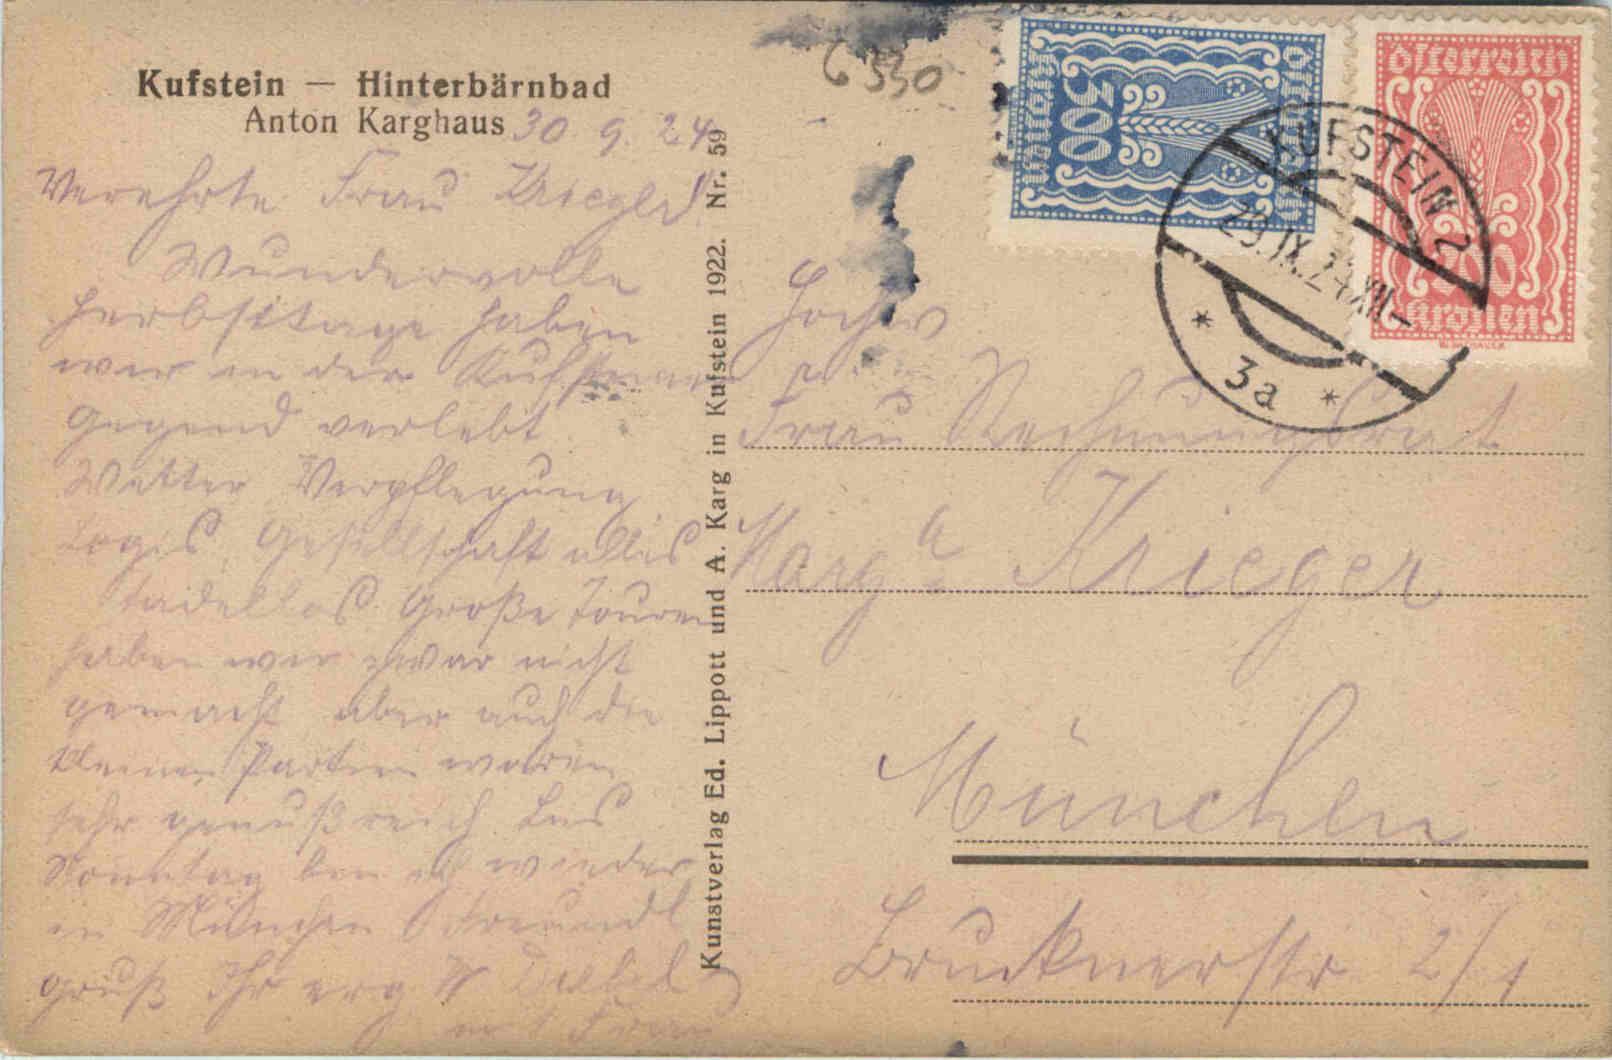 Kufstein — Hinterbärnbad
Anton Karghaus
30. 9. 24
Verehrte Frau Krieger!
Wundervolle
Herbsttage haben
wir in der Kufsteiner
Gegend verlebt
Wetter Verpflegung
Logis, Gesellschaft alles
tadellos. Große Touren
haben wir zwar nicht
gemacht aber auch die
kleinen Partien waren
sehr genußreich. Bis
Sonntag bin ich wieder
in München. Freundl
Gruß Ihr erg
Frau
Kunstverlag Ed. Lippott und A. Karg in Kufstein 1922. Nr. 59
6330
300
Kronen
Österreich
Österreich
Kronen
KUFSTEIN 2
29.IX.24.XII–
* 3a *
Hochw
Frau Rechnungsrat
Marg a Krieger
München
Brucknerstr 2/1